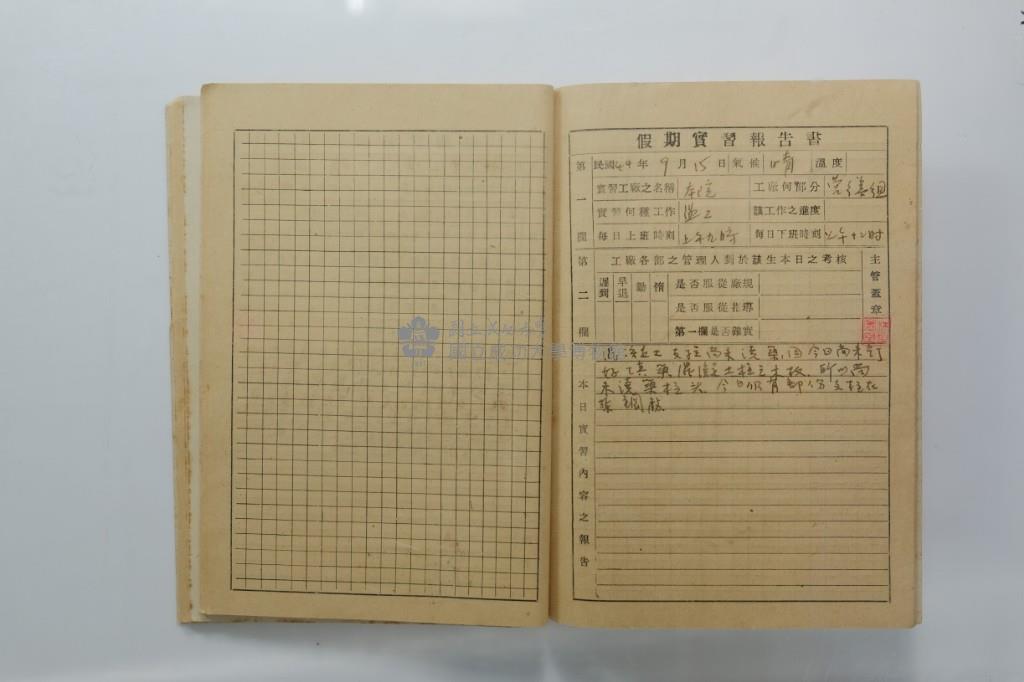 假期實習報告書
第一欄
民國49年9月15日 氣候 晴 溫度
實習工廠之名稱 本院 工廠何部分 營繕組
實習何種工作 監工 該工作之進度
每日上班時刻 上午九時 每日下班時刻 上午十二時
第二欄
工廠各部之管理人對於該生本日之考核
主管蓋章
遲到 早退 勤 惰 是否服從廠規
是否服從指導
第一欄是否雖實
本日實習內容之報告
尚未澆築,因今日尚未釘
好 築混凝土柱之木板,所以尚
未澆築柱头。今日仍有部份
國立成功大學博物館